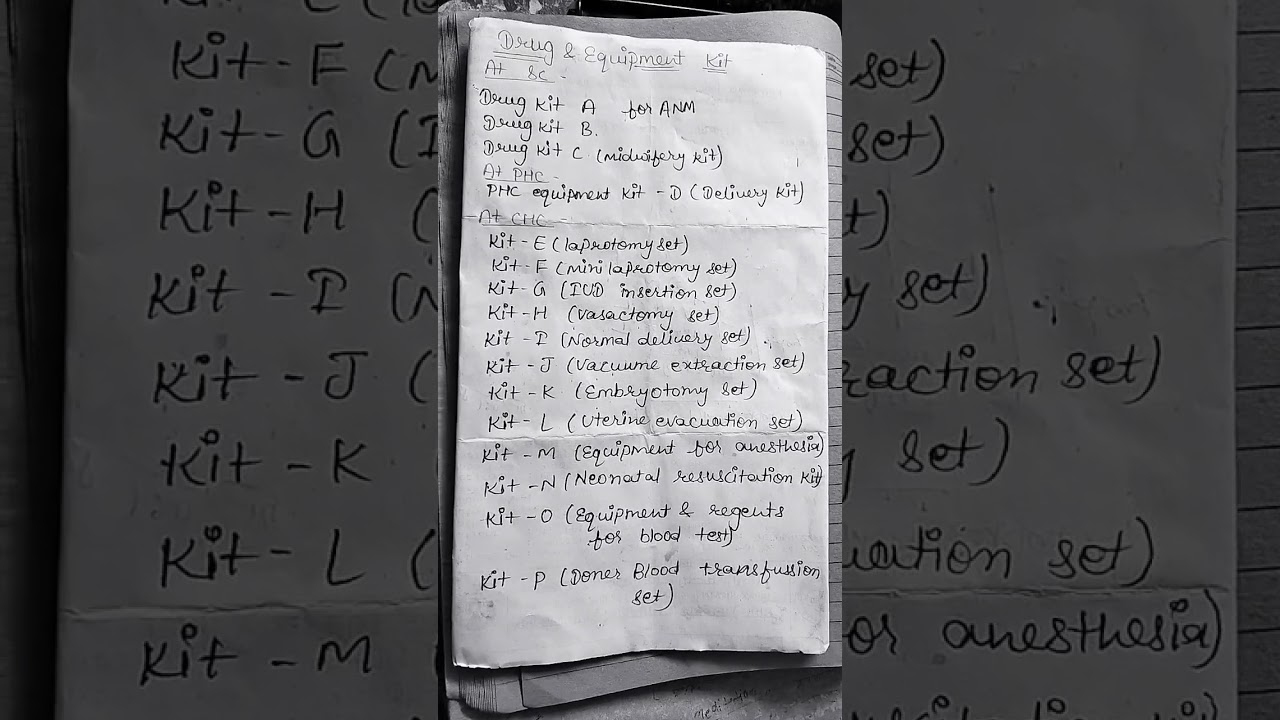 Drug & Equipment Kit
At SC -
Drug Kit A for ANM
Drug Kit B.
Drug Kit C (midwifery kit)
At PHC -
PHC equipment kit - D (Delivery Kit)
At CHC -
Kit - E (laprotomy set)
Kit - F (Mini laprotomy set)
Kit - G (IUD insertion set)
Kit - H (vasactomy set)
Kit - I (Normal delivery set)
Kit - J (Vacuume extraction set)
Kit - K (Embryotomy set)
Kit - L (Uterine evacuation set)
Kit - M (Equipment for anesthesia)
Kit - N (Neonatal resuscitation Kit)
Kit - O (Equipment & regents
for blood test)
Kit - P (Doner Blood transfussion
set)